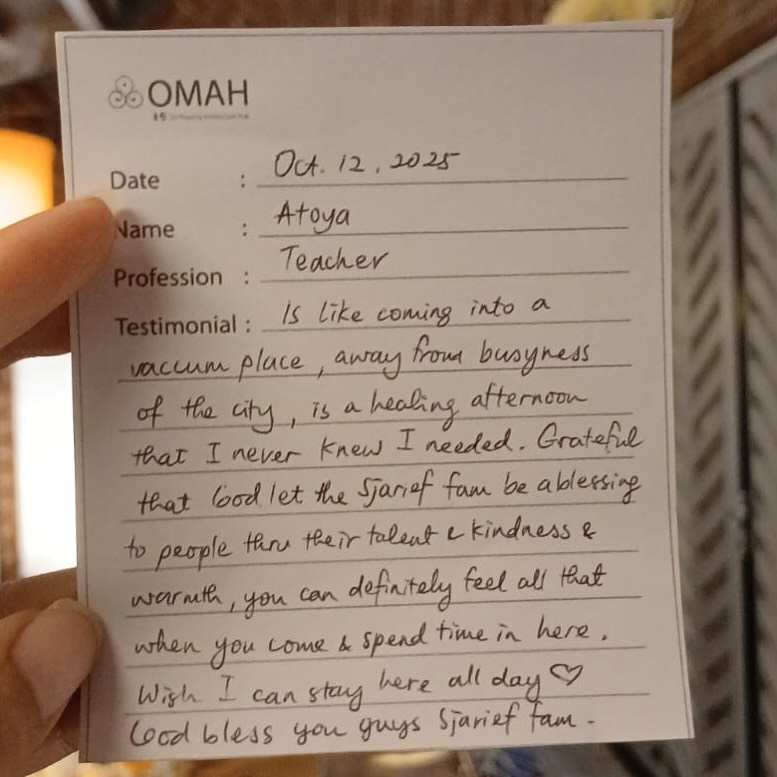 OMAH
Date : Oct. 12, 2025
Name : Atoya
Profession : Teacher
Testimonial : Is like coming into a
vaccum place, away from busyness
of the city, is a healing afternoon
that I never knew I needed. Grateful
that God let the Sjarief fam be a blessing
to people thru their talent & kindness &
warmth, you can definitely feel all that
when you come & spend time in here.
Wish I can stay here all day ♡
God bless you guys Sjarief fam.